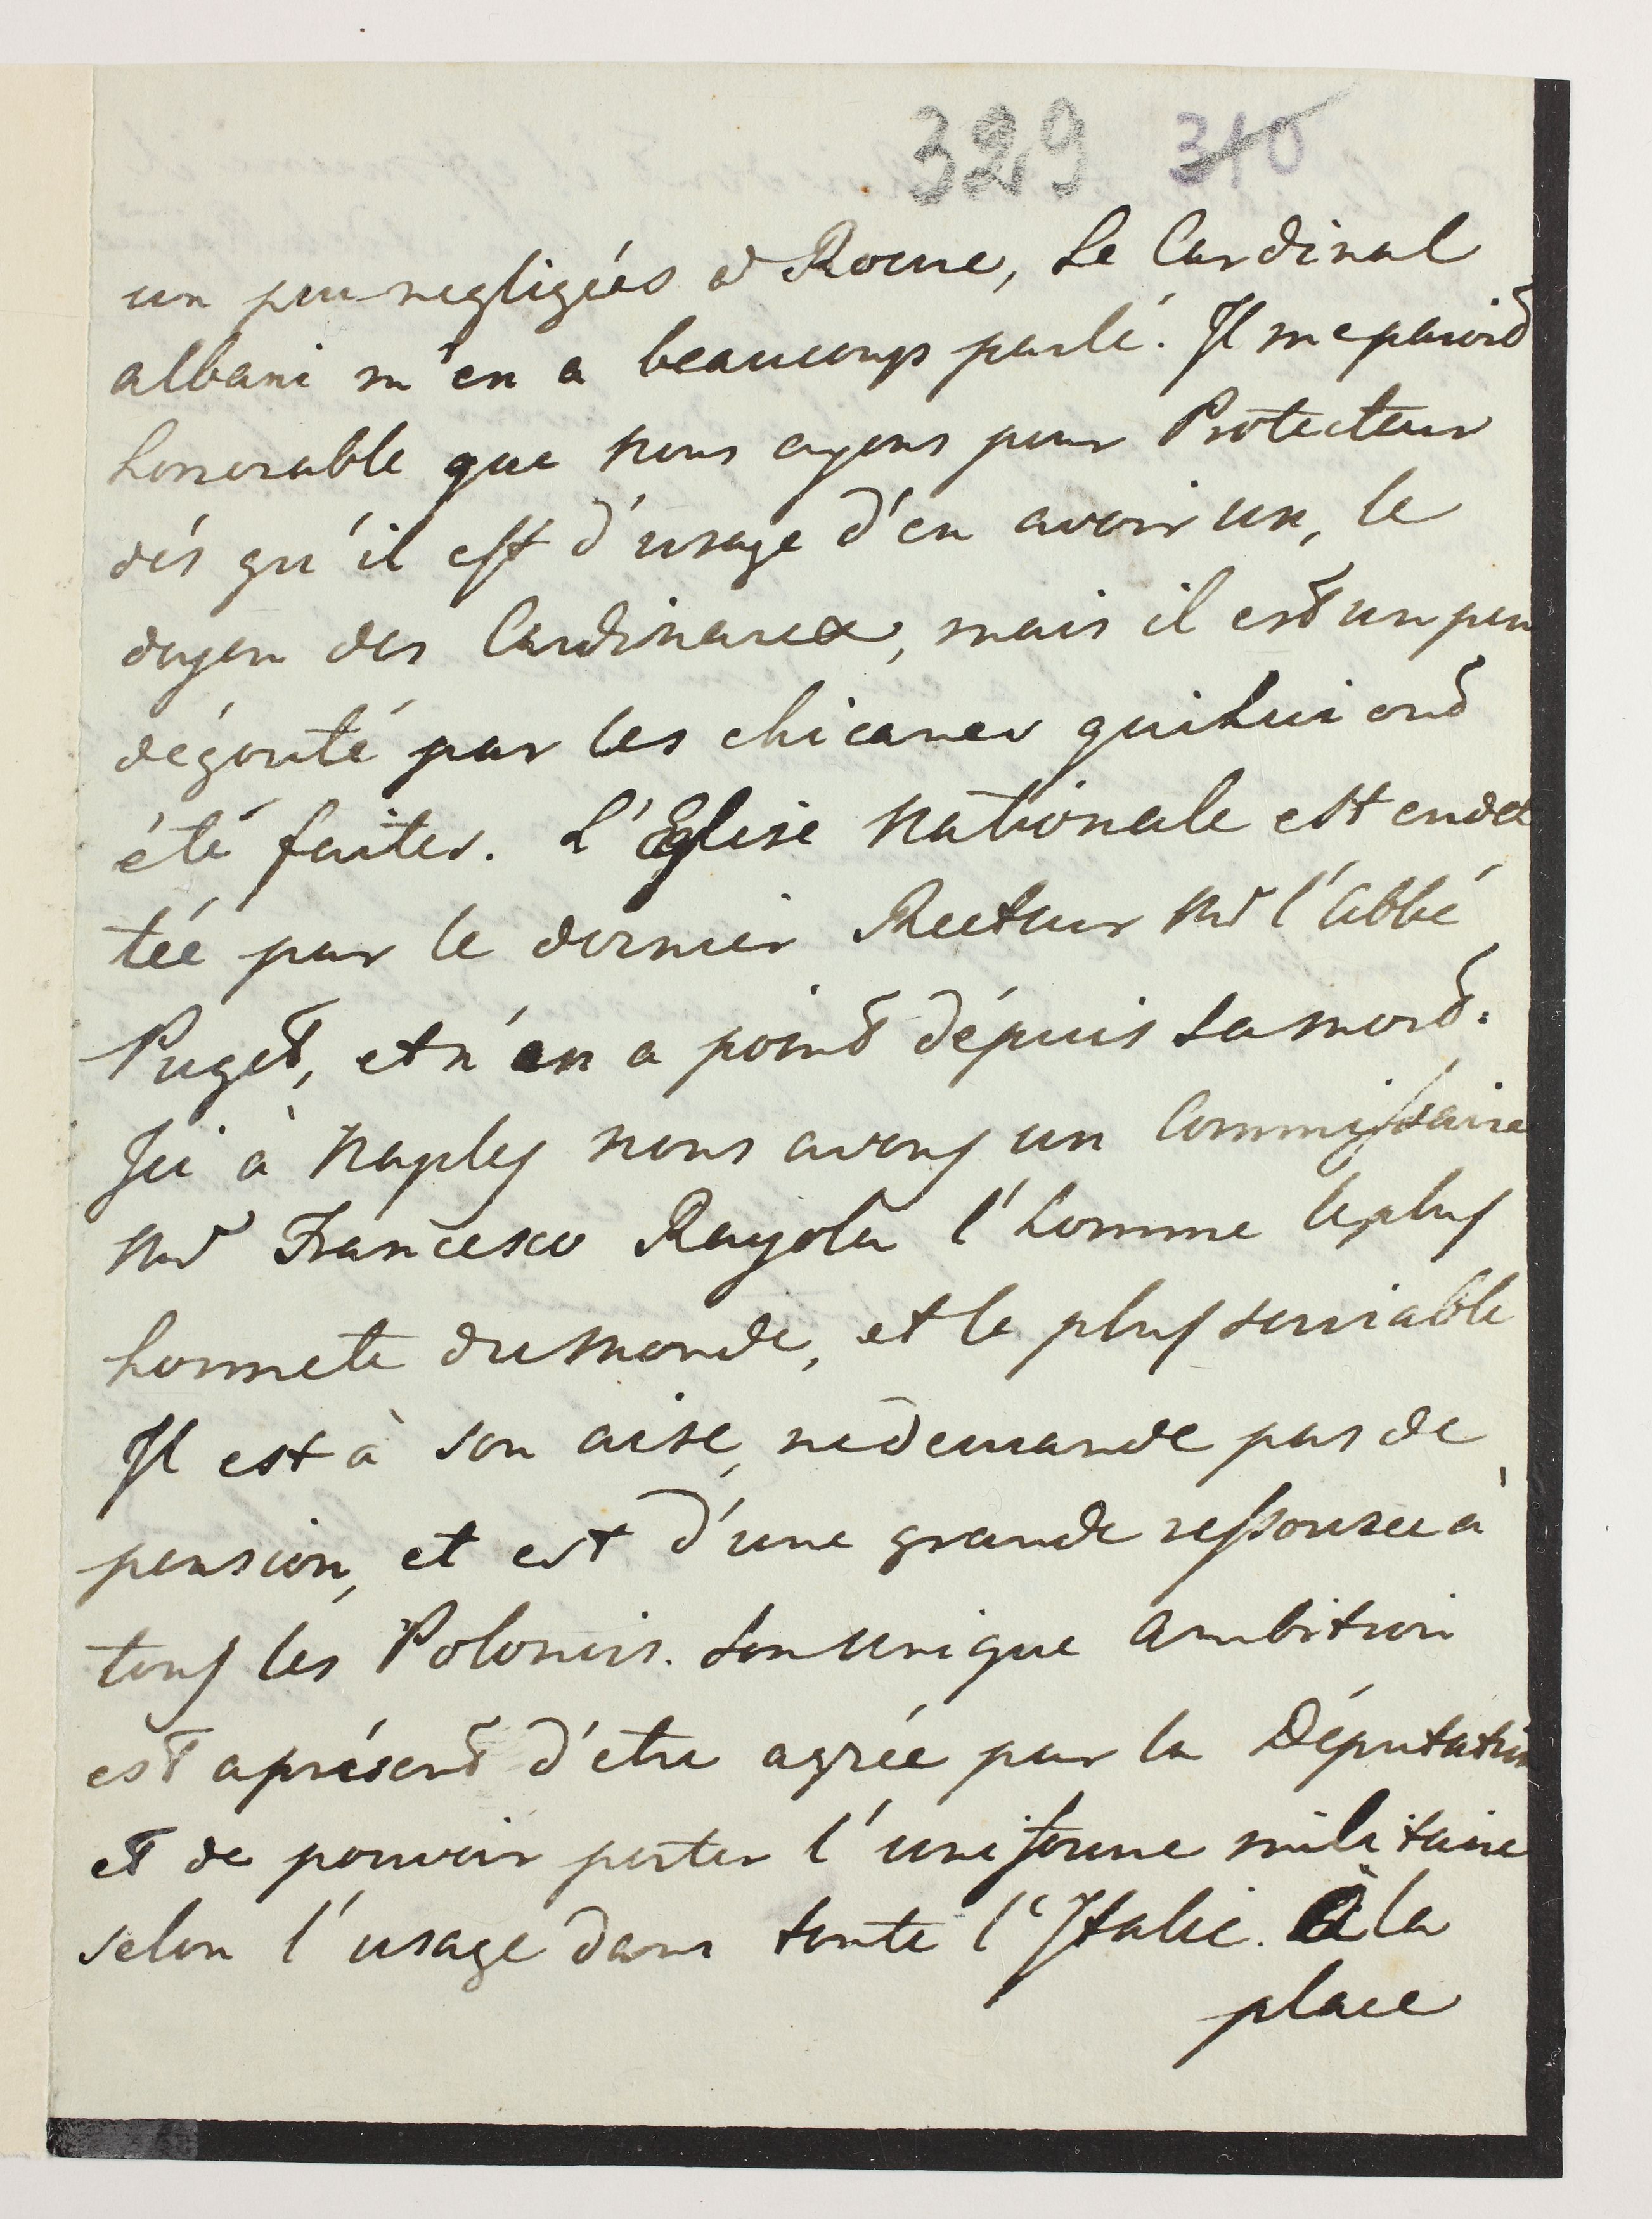 329 310
un peu negligées à Rome, Le Cardinal
albani m'en a beaucoups parlé. Il me paroit
honnorable que nous ayons pour Protecteur
dés qu'il est d'usage d'en avoir un, le
doyen des Cardinaux, mais il est un peu
dégouté par les chicanes qui Lui ont
été faites. L'Eglise Nationale est endet
tée par le dernier Recteur Mr l'abbé
Puget, et n'en a point dépuis sa mort.
Ici à Naples nous avons un Commissaire
Mr Francesco Rayola l'homme le plus
honnete du Monde, et le plus serviable
Il est à son aise, ne demande pas de
pension, et est d'une grande ressource à
tous les Polonois. Son unique ambition
est aprésent d'etre agrée par la Députation
et de pouvoir porter l'uniforme militaire
selon l'usage dans toute l'Italie. à la
place